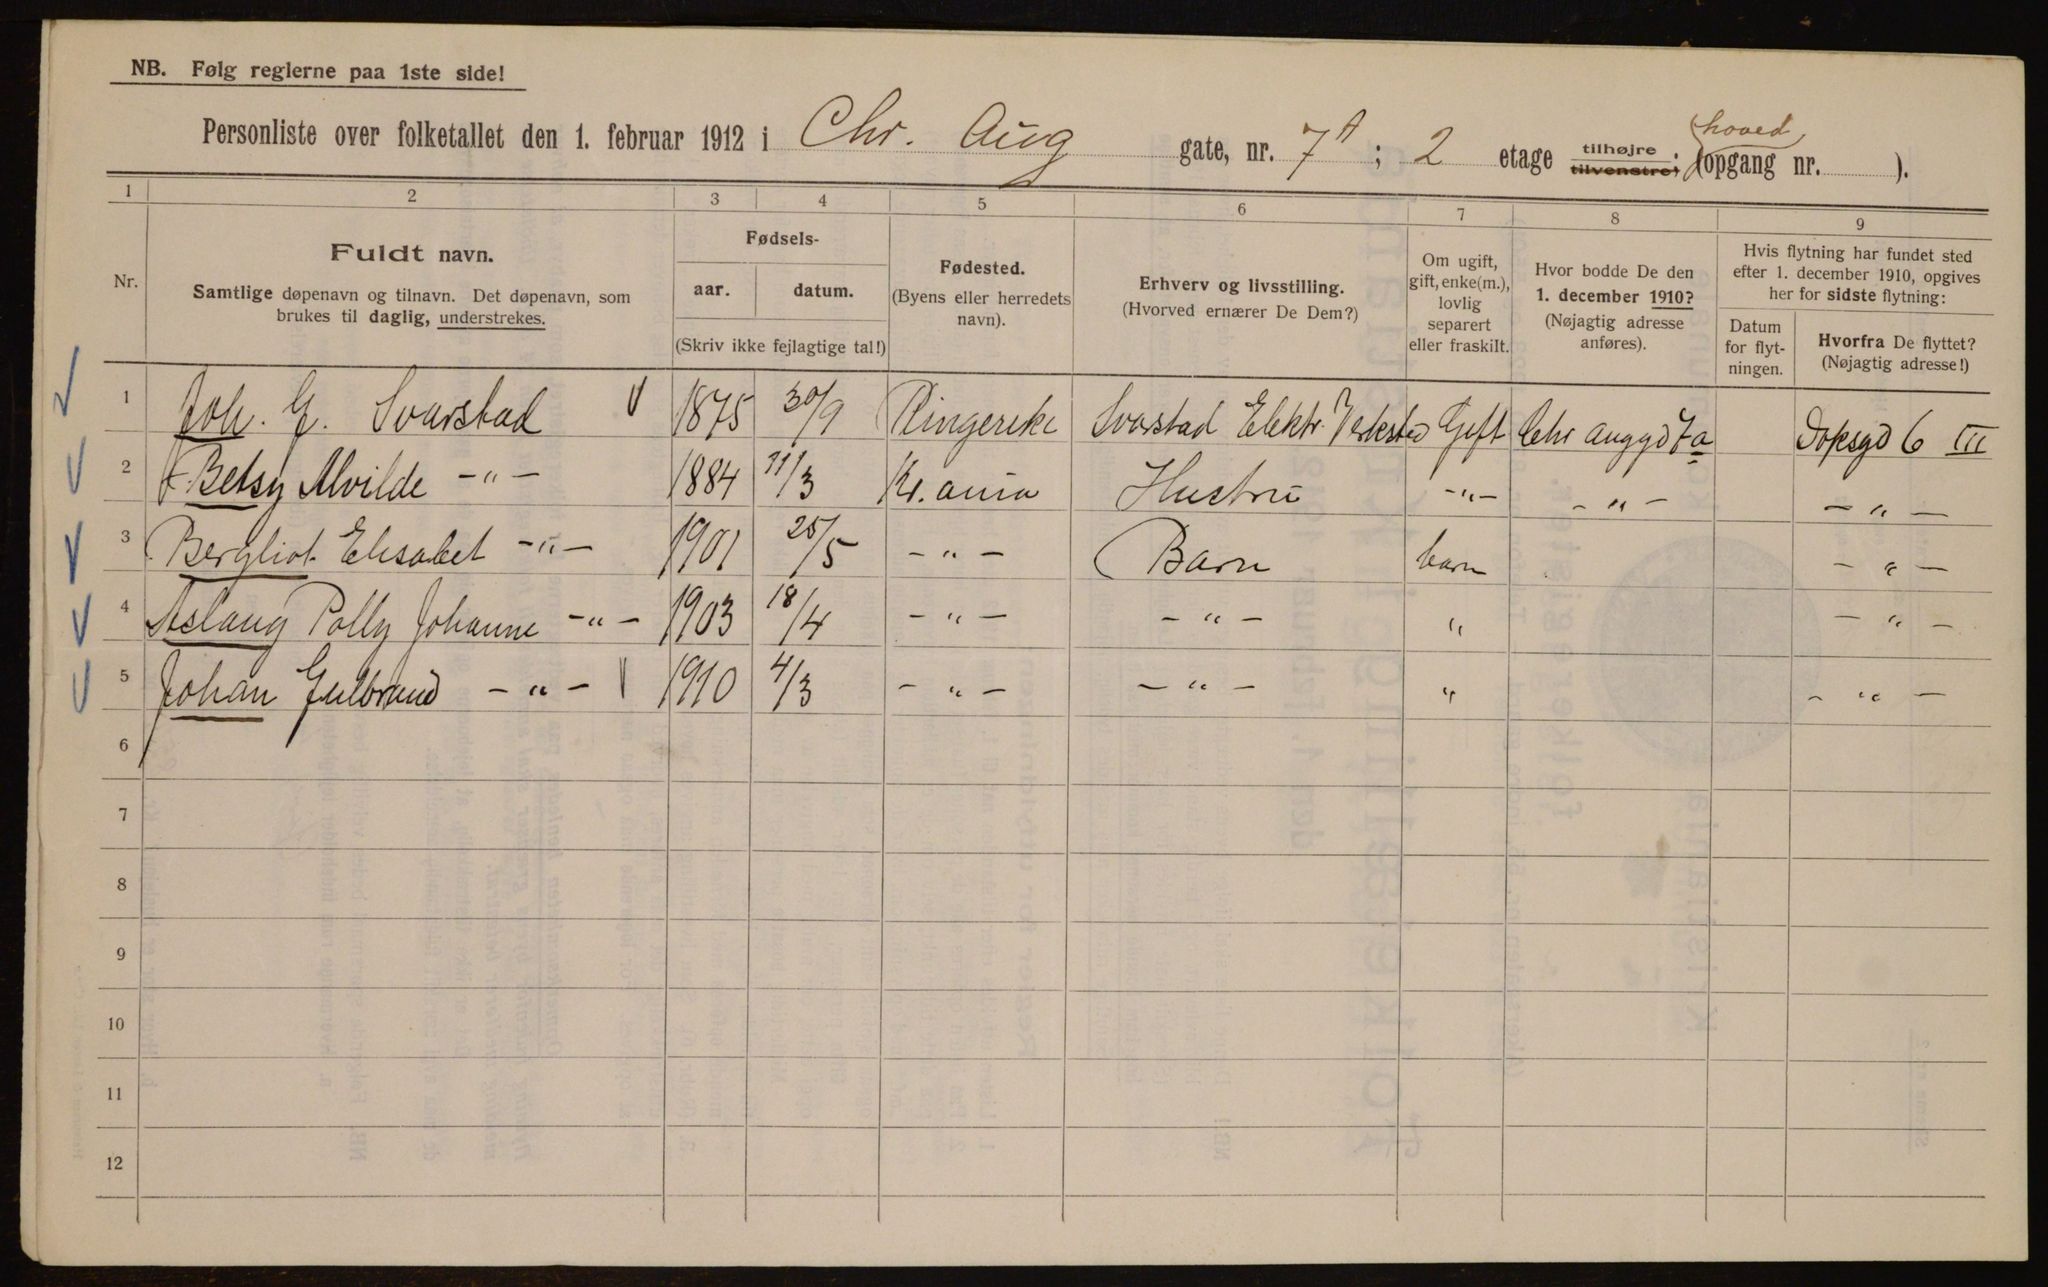 NB. Følg reglerne paa 1ste side!
Personliste over folketallet den 1. februar 1912 i Chr. Aug gate, nr. 7A ; 2 etage tilhøjre tilvenstre; (hoved opgang nr. ).
1 2 3 4 5 6 7 8 9
Nr.
Fuldt navn.
Samtlige døpenavn og tilnavn. Det døpenavn, som
brukes til daglig, understrekes.
Fødsels-
aar. datum.
(Skriv ikke fejlagtige tal!)
Fødested.
(Byens eller herredets
navn).
Erhverv og livsstilling.
(Hvorved ernærer De Dem?)
Om ugift,
gift, enke(m.),
lovlig
separert
eller fraskilt.
Hvor bodde De den
1. december 1910?
(Nøjagtig adresse
anføres).
Hvis flytning har fundet sted
efter 1. december 1910, opgives
her for sidste flytning:
Datum
for flyt-
ningen.
Hvorfra De flyttet?
(Nøjagtig adresse!)
1 Joh. G. Svarstad 1875 30/9 Ringerike Svarstad Elektr. Verksted Gift Chr auggd 7a 6 III
2 Betsy Alvilde -"- 1884 11/3 Kr.ania Hustru -"- -"- -"-
3 Bergliot Elisabet -"- 1901 25/5 -"- Barn barn -"-
4 Aslaug Polly Johanne -"- 1903 18/4 -"- -"- " -"-
5 Johan Gulbrand -"- 1910 4/3 -"- -"- " -"-
6
7
8
9
10
11
12